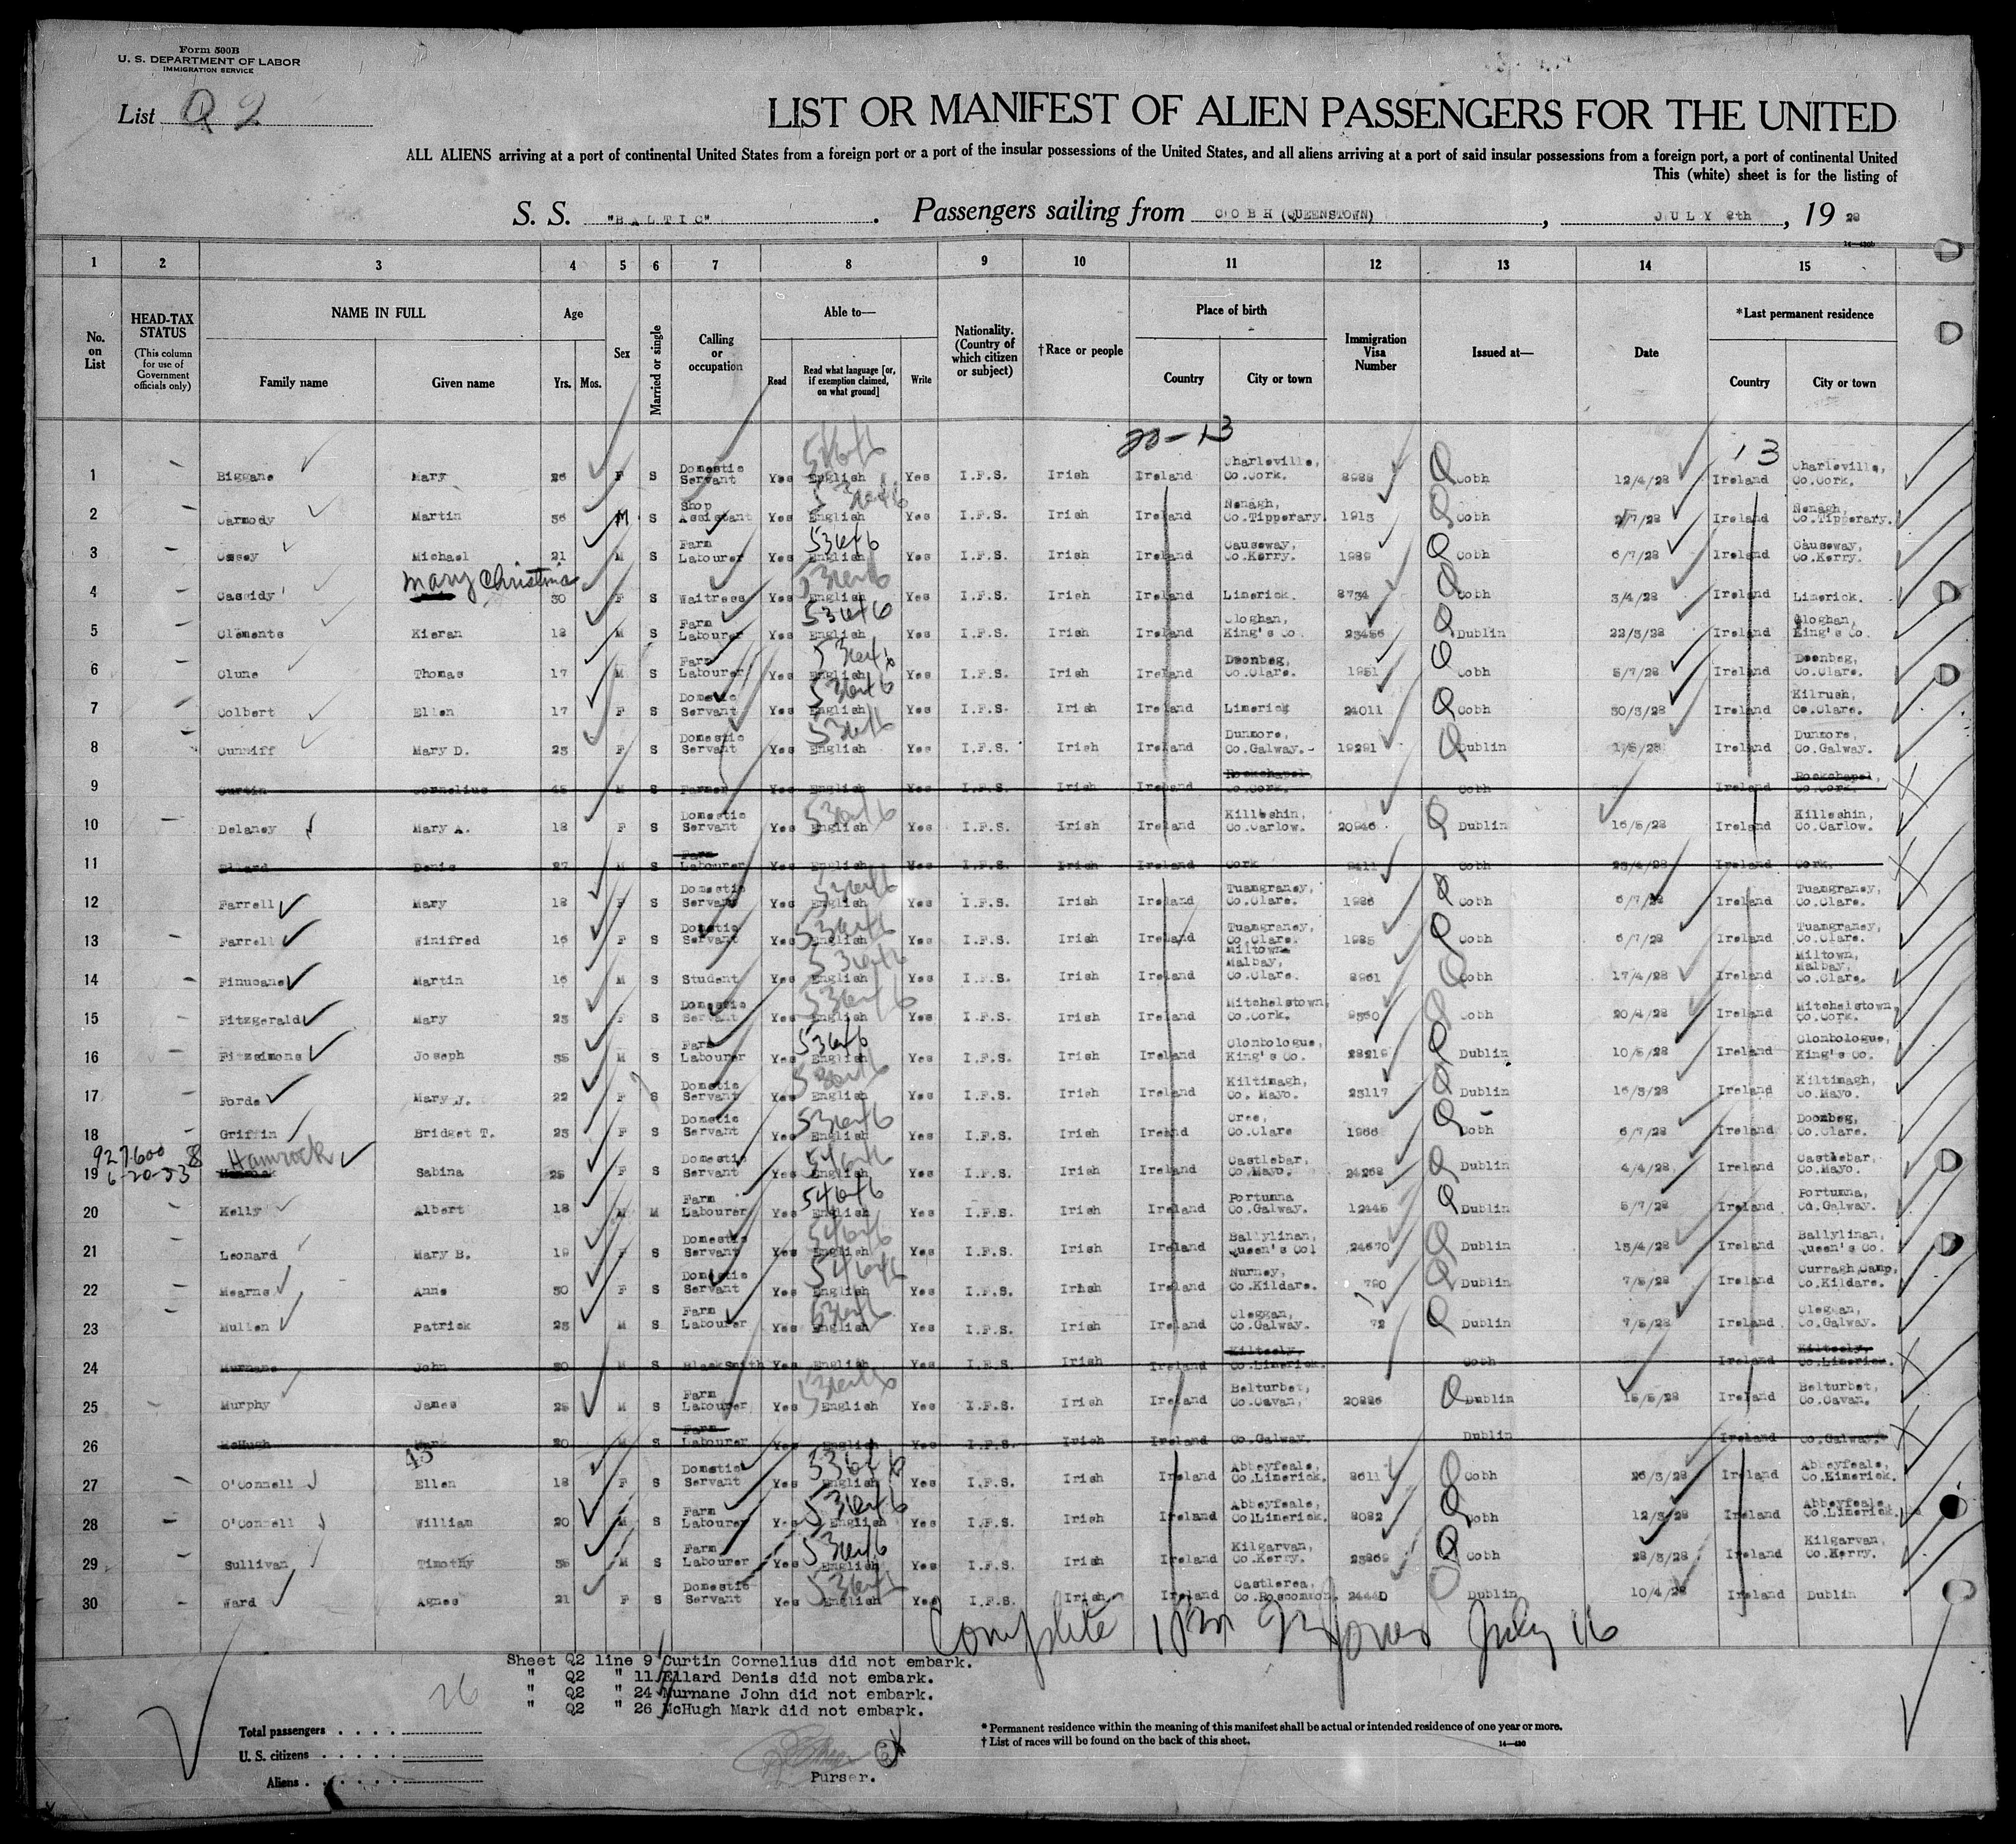 Form 500B
U. S. DEPARTMENT OF LABOR
IMMIGRATION SERVICE
List Q 2
LIST OR MANIFEST OF ALIEN PASSENGERS FOR THE UNITED
ALL ALIENS arriving at a port of continental United States from a foreign port or a port of the insular possessions of the United States, and all aliens arriving at a port of said insular possessions from a foreign port, a port of continental United
This (white) sheet is for the listing of
S. S. "BALTIC". Passengers sailing from COBH (QUEENSTOWN), JULY 8th, 19 28
1 2 3 4 5 6 7 8 9 10 11 12 13 14 15
No. on List
HEAD-TAX STATUS (This column for use of Government officials only)
NAME IN FULL Family name Given name
Age Yrs. Mos.
Sex
Married or single
Calling or occupation
Able to— Read Read what language [or, if exemption claimed, on what ground] Write
Nationality. (Country of which citizen or subject)
†Race or people
Place of birth Country City or town
Immigration Visa Number
Issued at—
Date
*Last permanent residence Country City or town
20-13 13
1 Biggane Mary 26 F S Domestic Servant Yes English Yes I.F.S. Irish Ireland Charleville, Co.Cork. 8988 Cobh 12/4/28 Ireland Charleville, Co.Cork.
2 Carmody Martin 36 M S Shop Assistant Yes English Yes I.F.S. Irish Ireland Nenagh, Co.Tipperary. 1913 Cobh 2/7/28 Ireland Nenagh, Co.Tipperary.
3 Casey Michael 21 M S Farm Labourer Yes English Yes I.F.S. Irish Ireland Causeway, Co.Kerry. 1989 Cobh 6/7/28 Ireland Causeway, Co.Kerry.
4 Cassidy Mary Christina 30 F S Waitress Yes English Yes I.F.S. Irish Ireland Limerick. 8734 Cobh 3/4/28 Ireland Limerick.
5 Clements Kieran 18 M S Farm Labourer Yes English Yes I.F.S. Irish Ireland Cloghan, King's Co. 23456 Dublin 22/3/28 Ireland Cloghan, King's Co.
6 Clune Thomas 17 M S Farm Labourer Yes English Yes I.F.S. Irish Ireland Doonbeg, Co.Clare. 1951 Cobh 5/7/28 Ireland Doonbeg, Co.Clare.
7 Colbert Ellen 17 F S Domestic Servant Yes English Yes I.F.S. Irish Ireland Limerick 24011 Cobh 30/3/28 Ireland Kilrush, Co.Clare.
8 Cunniff Mary D. 23 F S Domestic Servant Yes English Yes I.F.S. Irish Ireland Dunmore, Co.Galway. 19291 Dublin 1/5/28 Ireland Dunmore, Co.Galway.
9 Curtin Cornelius 45 M S Farmer Yes English Yes I.F.S. Irish Ireland Rockchapel, Co.Cork. Cobh Ireland Rockchapel, Co.Cork.
10 Delaney Mary A. 18 F S Domestic Servant Yes English Yes I.F.S. Irish Ireland Killeshin, Co.Carlow. 20946 Dublin 16/5/28 Ireland Killeshin, Co.Carlow.
11 Ellard Denis 27 M S Farm Labourer Yes English Yes I.F.S. Irish Ireland Cork 9411 Cobh 23/4/28 Ireland Cork.
12 Farrell Mary 18 F S Domestic Servant Yes English Yes I.F.S. Irish Ireland Tuamgraney, Co.Clare. 1986 Cobh 6/7/28 Ireland Tuamgraney, Co.Clare.
13 Farrell Winifred 16 F S Domestic Servant Yes English Yes I.F.S. Irish Ireland Tuamgraney, Co.Clare. 1985 Cobh 6/7/28 Ireland Tuamgraney, Co.Clare.
14 Finucane Martin 16 M S Student Yes English Yes I.F.S. Irish Ireland Miltown Malbay, Co.Clare. 8961 Cobh 17/4/28 Ireland Miltown, Malbay, Co.Clare.
15 Fitzgerald Mary 23 F S Domestic Servant Yes English Yes I.F.S. Irish Ireland Mitchelstown, Co.Cork. 9350 Cobh 20/4/28 Ireland Mitchelstown, Co.Cork.
16 Fitzsimons Joseph 35 M S Farm Labourer Yes English Yes I.F.S. Irish Ireland Clonbologue, King's Co. 28219 Dublin 10/5/28 Ireland Clonbologue, King's Co.
17 Forde Mary J. 22 F S Domestic Servant Yes English Yes I.F.S. Irish Ireland Kiltimagh, Co. Mayo. 23117 Dublin 16/3/28 Ireland Kiltimagh, Co.Mayo.
18 Griffin Bridget T. 23 F S Domestic Servant Yes English Yes I.F.S. Irish Ireland Cree, Co.Clare 1966 Cobh 6/7/28 Ireland Doonbeg, Co.Clare.
927600 8
6-20-53
19 Hamrock Sabina 25 F S Domestic Servant Yes English Yes I.F.S. Irish Ireland Castlebar, Co.Mayo. 24268 Dublin 4/4/28 Ireland Castlebar, Co.Mayo.
20 Kelly Albert 18 M M Farm Labourer Yes English Yes I.F.S. Irish Ireland Portumna Co.Galway. 12445 Dublin 5/7/28 Ireland Portumna, Co.Galway.
21 Leonard Mary B. 19 F S Domestic Servant Yes English Yes I.F.S. Irish Ireland Ballylinan, Queen's Col 24670 Dublin 13/4/28 Ireland Ballylinan, Queen's Co.
22 Mearns Anne 30 F S Domestic Servant Yes English Yes I.F.S. Irish Ireland Nurney, Co.Kildare. 790 Dublin 7/5/28 Ireland Curragh Camp, Co.Kildare.
23 Mullen Patrick 23 M S Farm Labourer Yes English Yes I.F.S. Irish Ireland Cleggan, Co.Galway. 72 Dublin 7/5/28 Ireland Cleggan, Co.Galway.
24 Murnane John 30 M S Blacksmith Yes English Yes I.F.S. Irish Ireland Kilteely, Co.Limerick. Cobh Ireland Kilteely, Co.Limerick.
25 Murphy James 25 M S Farm Labourer Yes English Yes I.F.S. Irish Ireland Belturbet, Co.Cavan, 20886 Dublin 15/5/28 Ireland Belturbet, Co.Cavan.
26 McHugh Mark 30 M S Farm Labourer Yes English Yes I.F.S. Irish Ireland Co.Galway. Dublin Ireland Co.Galway.
27 O'Connell Ellen 18 F S Domestic Servant Yes English Yes I.F.S. Irish Ireland Abbeyfeale, Co.Limerick. 8611 Cobh 26/3/28 Ireland Abbeyfeale, Co.Limerick.
28 O'Connell William 20 M S Farm Labourer Yes English Yes I.F.S. Irish Ireland Abbeyfeale, Co.Limerick. 8082 Cobh 12/3/28 Ireland Abbeyfeale, Co.Limerick.
29 Sullivan Timothy 35 M S Farm Labourer Yes English Yes I.F.S. Irish Ireland Kilgarvan, Co.Kerry. 23869 Cobh 28/3/28 Ireland Kilgarvan, Co.Kerry.
30 Ward Agnes 21 F S Domestic Servant Yes English Yes I.F.S. Irish Ireland Castlerea, Co.Roscommon. 24440 Dublin 10/4/28 Ireland Dublin
Complete Jones July 16
Sheet Q2 line 9 Curtin Cornelius did not embark.
" Q2 " 11 Ellard Denis did not embark.
" Q2 " 24 Murnane John did not embark.
" Q2 " 26 McHugh Mark did not embark.
26
Total passengers
U. S. citizens
Aliens
Purser.
* Permanent residence within the meaning of this manifest shall be actual or intended residence of one year or more.
† List of races will be found on the back of this sheet.
14—430